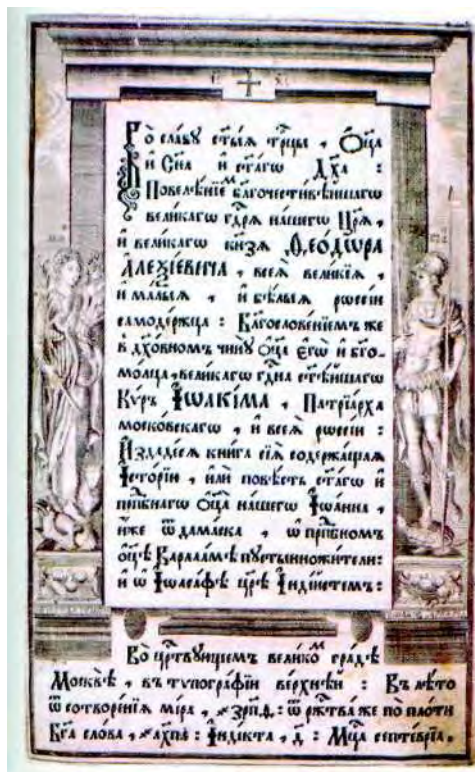 Во славу ст҃ыѧ трⷪ҇цы , Ѻц҃а
и҆ Сн҃а и҆ ст҃а́гѡ Дх҃а :
Повелѣ́нїеⷨ бл҃гочести́вѣйшагѡ
вели́кагѡ гдⷭ҇рѧ на́шегѡ Цр҃ѧ ,
и҆ вели́кагѡ кн҃зѧ Ѳео́дѡра
А҆леѯі́евича , всеѧ̀ вели́кїѧ ,
и҆ ма́лыѧ , и҆ бѣ́лыѧ рѡссі́и
самоде́ржца : Бл҃гослове́нїемъ же
в дх҃о́вномъ чи́нꙋ Ѻц҃а̀ є҆гѡ̀ и҆ бг҃о-
мо́лца , вели́кагѡ гдⷭ҇на ст҃ѣ́йшагѡ
Кѵ́ръ І҆ѡаки́ма , Патрїа́рха
моско́вскагѡ , и҆ всеѧ̀ рѡссі́и :
И҆здаде́сѧ кни́га сїѧ̀ содержа́щаѧ
І҆сто́рїю , и҆лѝ по́вѣсть ст҃а́гѡ и҆
прпⷣбнагѡ Ѻц҃а̀ на́шегѡ І҆ѡа́нна ,
и҆́же ѿ дама́ска , ѡ҆ прпⷣбномъ
ѻ҆ц҃ѣ̀ Варлаа́мѣ пꙋстынножи́тели :
и҆ ѡ҆ І҆ѡаса́фѣ цр҃ѣ̀ І҆нді́йстемъ :
Во црⷭ҇твꙋющемъ вели́коⷨ гра́дѣ
Москвѣ̀ , в̾ тѵпогра́фїи ве́рхнѣй : В̾ лѣ́то
ѿ сотворе́нїѧ мі́ра , ҂зр҃п҃ѳ : ѿ рⷤ҇тва́ же по пло́ти
Бг҃а сло́ва , ҂ах҃п҃ : І҆нді́кта , д҃ : Мцⷭ҇а септе́врїа .